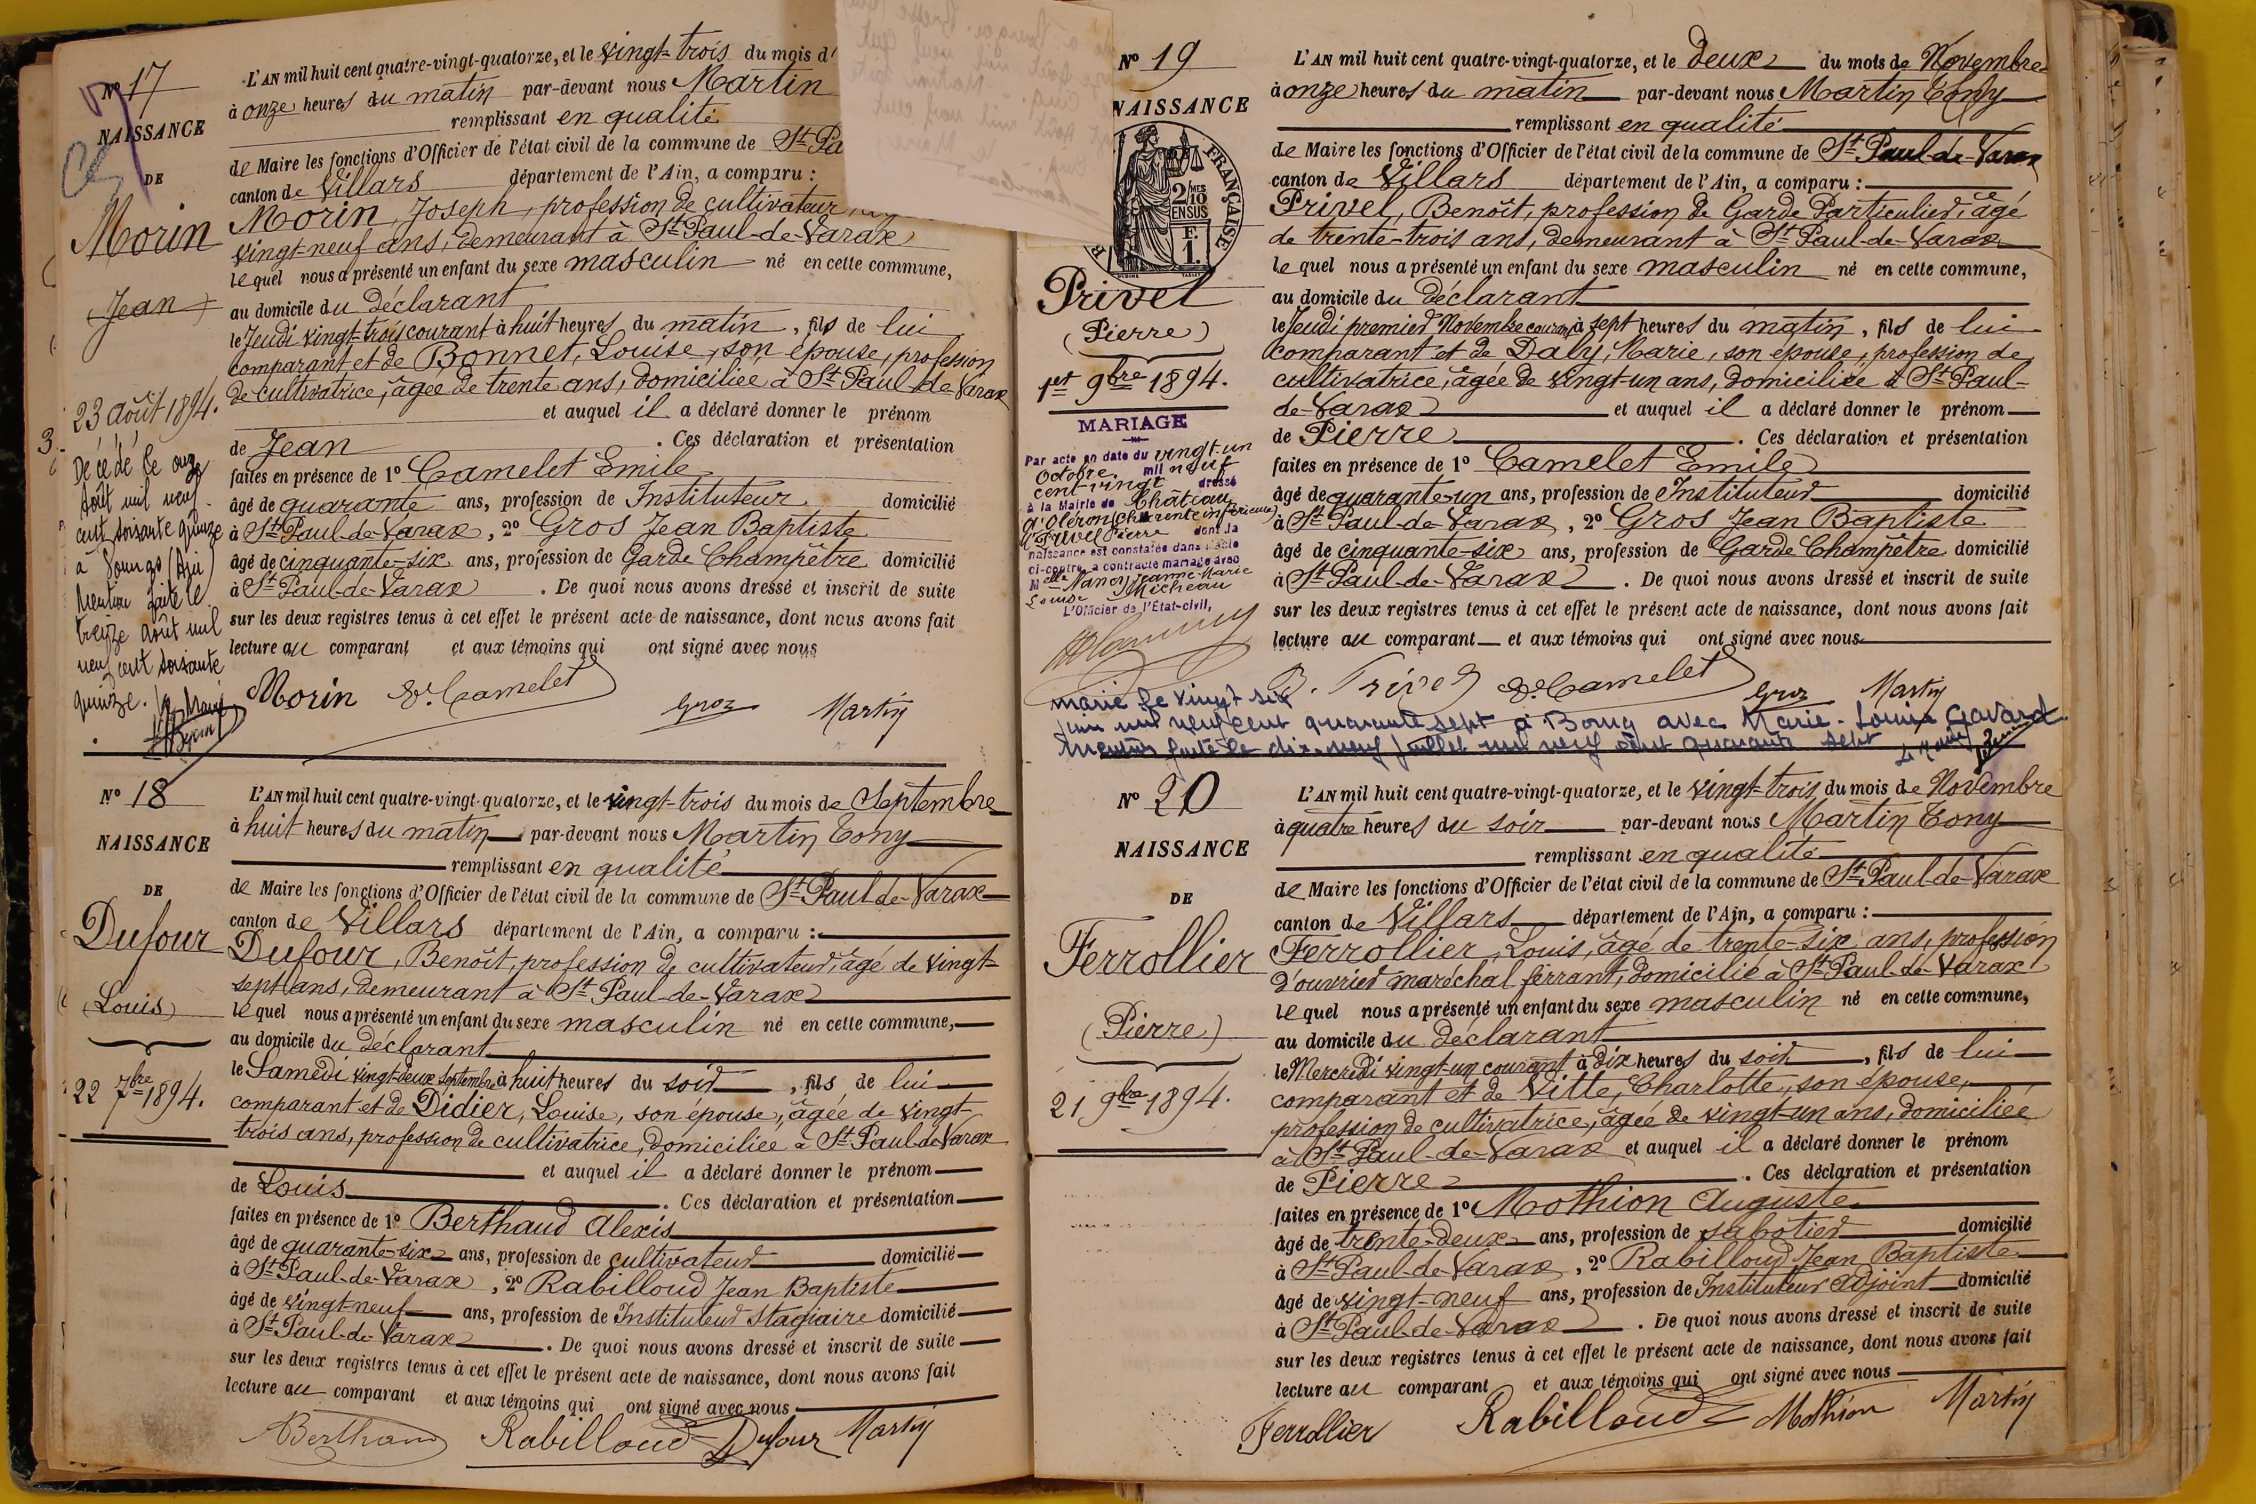 N° 17
NAISSANCE
DE
Morin
(Jean)
23 août 1894.
Décédé le onze
Août mil neuf
cent soixante quinze
à
Mention faite le
treize Août mil
neuf cent soixante
quinze.
L'AN mil huit cent quatre-vingt-quatorze, et le vingt-trois du mois d'
à onze heures du matin par-devant nous Martin
remplissant en qualité
de Maire les fonctions d'Officier de l'état civil de la commune de St Pa
canton de Villars département de l'Ain, a comparu :
Morin, Joseph, profession de cultivateur,
vingt-neuf ans, demeurant à St Paul-de-Varax
lequel nous a présenté un enfant du sexe masculin né en cette commune,
au domicile du déclarant
le Jeudi vingt-trois courant à huit heures du matin, fils de lui
comparant et de Bonnet, Louise, son épouse, profession
de cultivatrice, âgée de trente ans, domiciliée à St Paul-de-Varax
et auquel il a déclaré donner le prénom
de Jean . Ces déclaration et présentation
faites en présence de 1° Camelet Emile
âgé de quarante ans, profession de Instituteur domicilié
à St Paul-de-Varax, 2° Gros Jean Baptiste
âgé de cinquante-six ans, profession de Garde Champêtre domicilié
à St Paul-de-Varax . De quoi nous avons dressé et inscrit de suite
sur les deux registres tenus à cet effet le présent acte de naissance, dont nous avons fait
lecture au comparant et aux témoins qui ont signé avec nous
Morin E. Camelet Gros Martin
N° 18
NAISSANCE
DE
Dufour
(Louis)
22 7bre 1894.
L'AN mil huit cent quatre-vingt-quatorze, et le vingt-trois du mois de Septembre
à huit heures du matin par-devant nous Martin Tony
remplissant en qualité
de Maire les fonctions d'Officier de l'état civil de la commune de St Paul-de-Varax
canton de Villars département de l'Ain, a comparu :
Dufour, Benoît, profession de cultivateur, âgé de vingt-
sept ans, demeurant à St Paul-de-Varax
lequel nous a présenté un enfant du sexe masculin né en cette commune,
au domicile du déclarant
le Samedi vingt-deux Septembre à huit heures du soir, fils de lui
comparant et de Didier, Louise, son épouse, âgée de vingt-
trois ans, profession de cultivatrice, domiciliée à St Paul-de-Varax
et auquel il a déclaré donner le prénom
de Louis . Ces déclaration et présentation
faites en présence de 1° Berthaud Alexis
âgé de quarante-six ans, profession de cultivateur domicilié
à St Paul-de-Varax, 2° Rabilloud Jean Baptiste
âgé de vingt-neuf ans, profession de Instituteur Stagiaire domicilié
à St Paul-de-Varax . De quoi nous avons dressé et inscrit de suite
sur les deux registres tenus à cet effet le présent acte de naissance, dont nous avons fait
lecture au comparant et aux témoins qui ont signé avec nous
Berthaud Rabilloud Dufour Martin
N° 19
NAISSANCE
FRANÇAISE
2/10 MES
EN SUS
F.
1.
Privel
(Pierre)
1er 9bre 1894.
MARIAGE
Par acte en date du vingt-un
Octobre mil neuf
cent vingt dressé
à la Mairie de Château
d'Oléron (Charente inférieure)
Privel Pierre dont la
naissance est constatée dans l'acte
ci-contre a contracté mariage avec
Melle Jeanne Marie
Louise Micheau
L'Officier de l'Etat-civil,
L'AN mil huit cent quatre-vingt-quatorze, et le deux du mois de Novembre
à onze heures du matin par-devant nous Martin Tony
remplissant en qualité
de Maire les fonctions d'Officier de l'état civil de la commune de St Paul-de-Varax
canton de Villars département de l'Ain, a comparu :
Privel, Benoît, profession de Garde Particulier, âgé
de trente-trois ans, demeurant à St Paul-de-Varax
lequel nous a présenté un enfant du sexe masculin né en cette commune,
au domicile du déclarant
le Jeudi premier Novembre courant à sept heures du matin, fils de lui
comparant et de Daby, Marie, son épouse, profession de
cultivatrice, âgée de vingt-un ans, domiciliée à St Paul-
de-Varax et auquel il a déclaré donner le prénom
de Pierre . Ces déclaration et présentation
faites en présence de 1° Camelet Emile
âgé de quarante-un ans, profession de Instituteur domicilié
à St Paul-de-Varax, 2° Gros Jean Baptiste
âgé de cinquante-six ans, profession de Garde Champêtre domicilié
à St Paul-de-Varax . De quoi nous avons dressé et inscrit de suite
sur les deux registres tenus à cet effet le présent acte de naissance, dont nous avons fait
lecture au comparant et aux témoins qui ont signé avec nous
B. Privel E. Camelet Gros Martin
marié le vingt six
juin mil neuf cent quarante sept à Bourg avec Marie-Louise Gavard
Mention faite le dix-neuf juillet mil neuf cent quarante sept
N° 20
NAISSANCE
DE
Ferrollier
(Pierre)
21 9bre 1894.
L'AN mil huit cent quatre-vingt-quatorze, et le vingt-trois du mois de Novembre
à quatre heures du soir par-devant nous Martin Tony
remplissant en qualité
de Maire les fonctions d'Officier de l'état civil de la commune de St Paul-de-Varax
canton de Villars département de l'Ain, a comparu :
Ferrollier, Louis, âgé de trente-six ans, profession
d'ouvrier maréchal ferrant, domicilié à St Paul-de-Varax
lequel nous a présenté un enfant du sexe masculin né en cette commune,
au domicile du déclarant
le Mercredi vingt-un courant à dix heures du soir, fils de lui
comparant et de Vitte, Charlotte, son épouse,
profession de cultivatrice, âgée de vingt-un ans, domiciliée
à St Paul-de-Varax et auquel il a déclaré donner le prénom
de Pierre . Ces déclaration et présentation
faites en présence de 1° Mothion Auguste
âgé de trente-deux ans, profession de sabotier domicilié
à St Paul-de-Varax, 2° Rabilloud Jean Baptiste
âgé de vingt-neuf ans, profession de Instituteur Adjoint domicilié
à St Paul-de-Varax . De quoi nous avons dressé et inscrit de suite
sur les deux registres tenus à cet effet le présent acte de naissance, dont nous avons fait
lecture au comparant et aux témoins qui ont signé avec nous
Ferrollier Rabilloud Mothion Martin